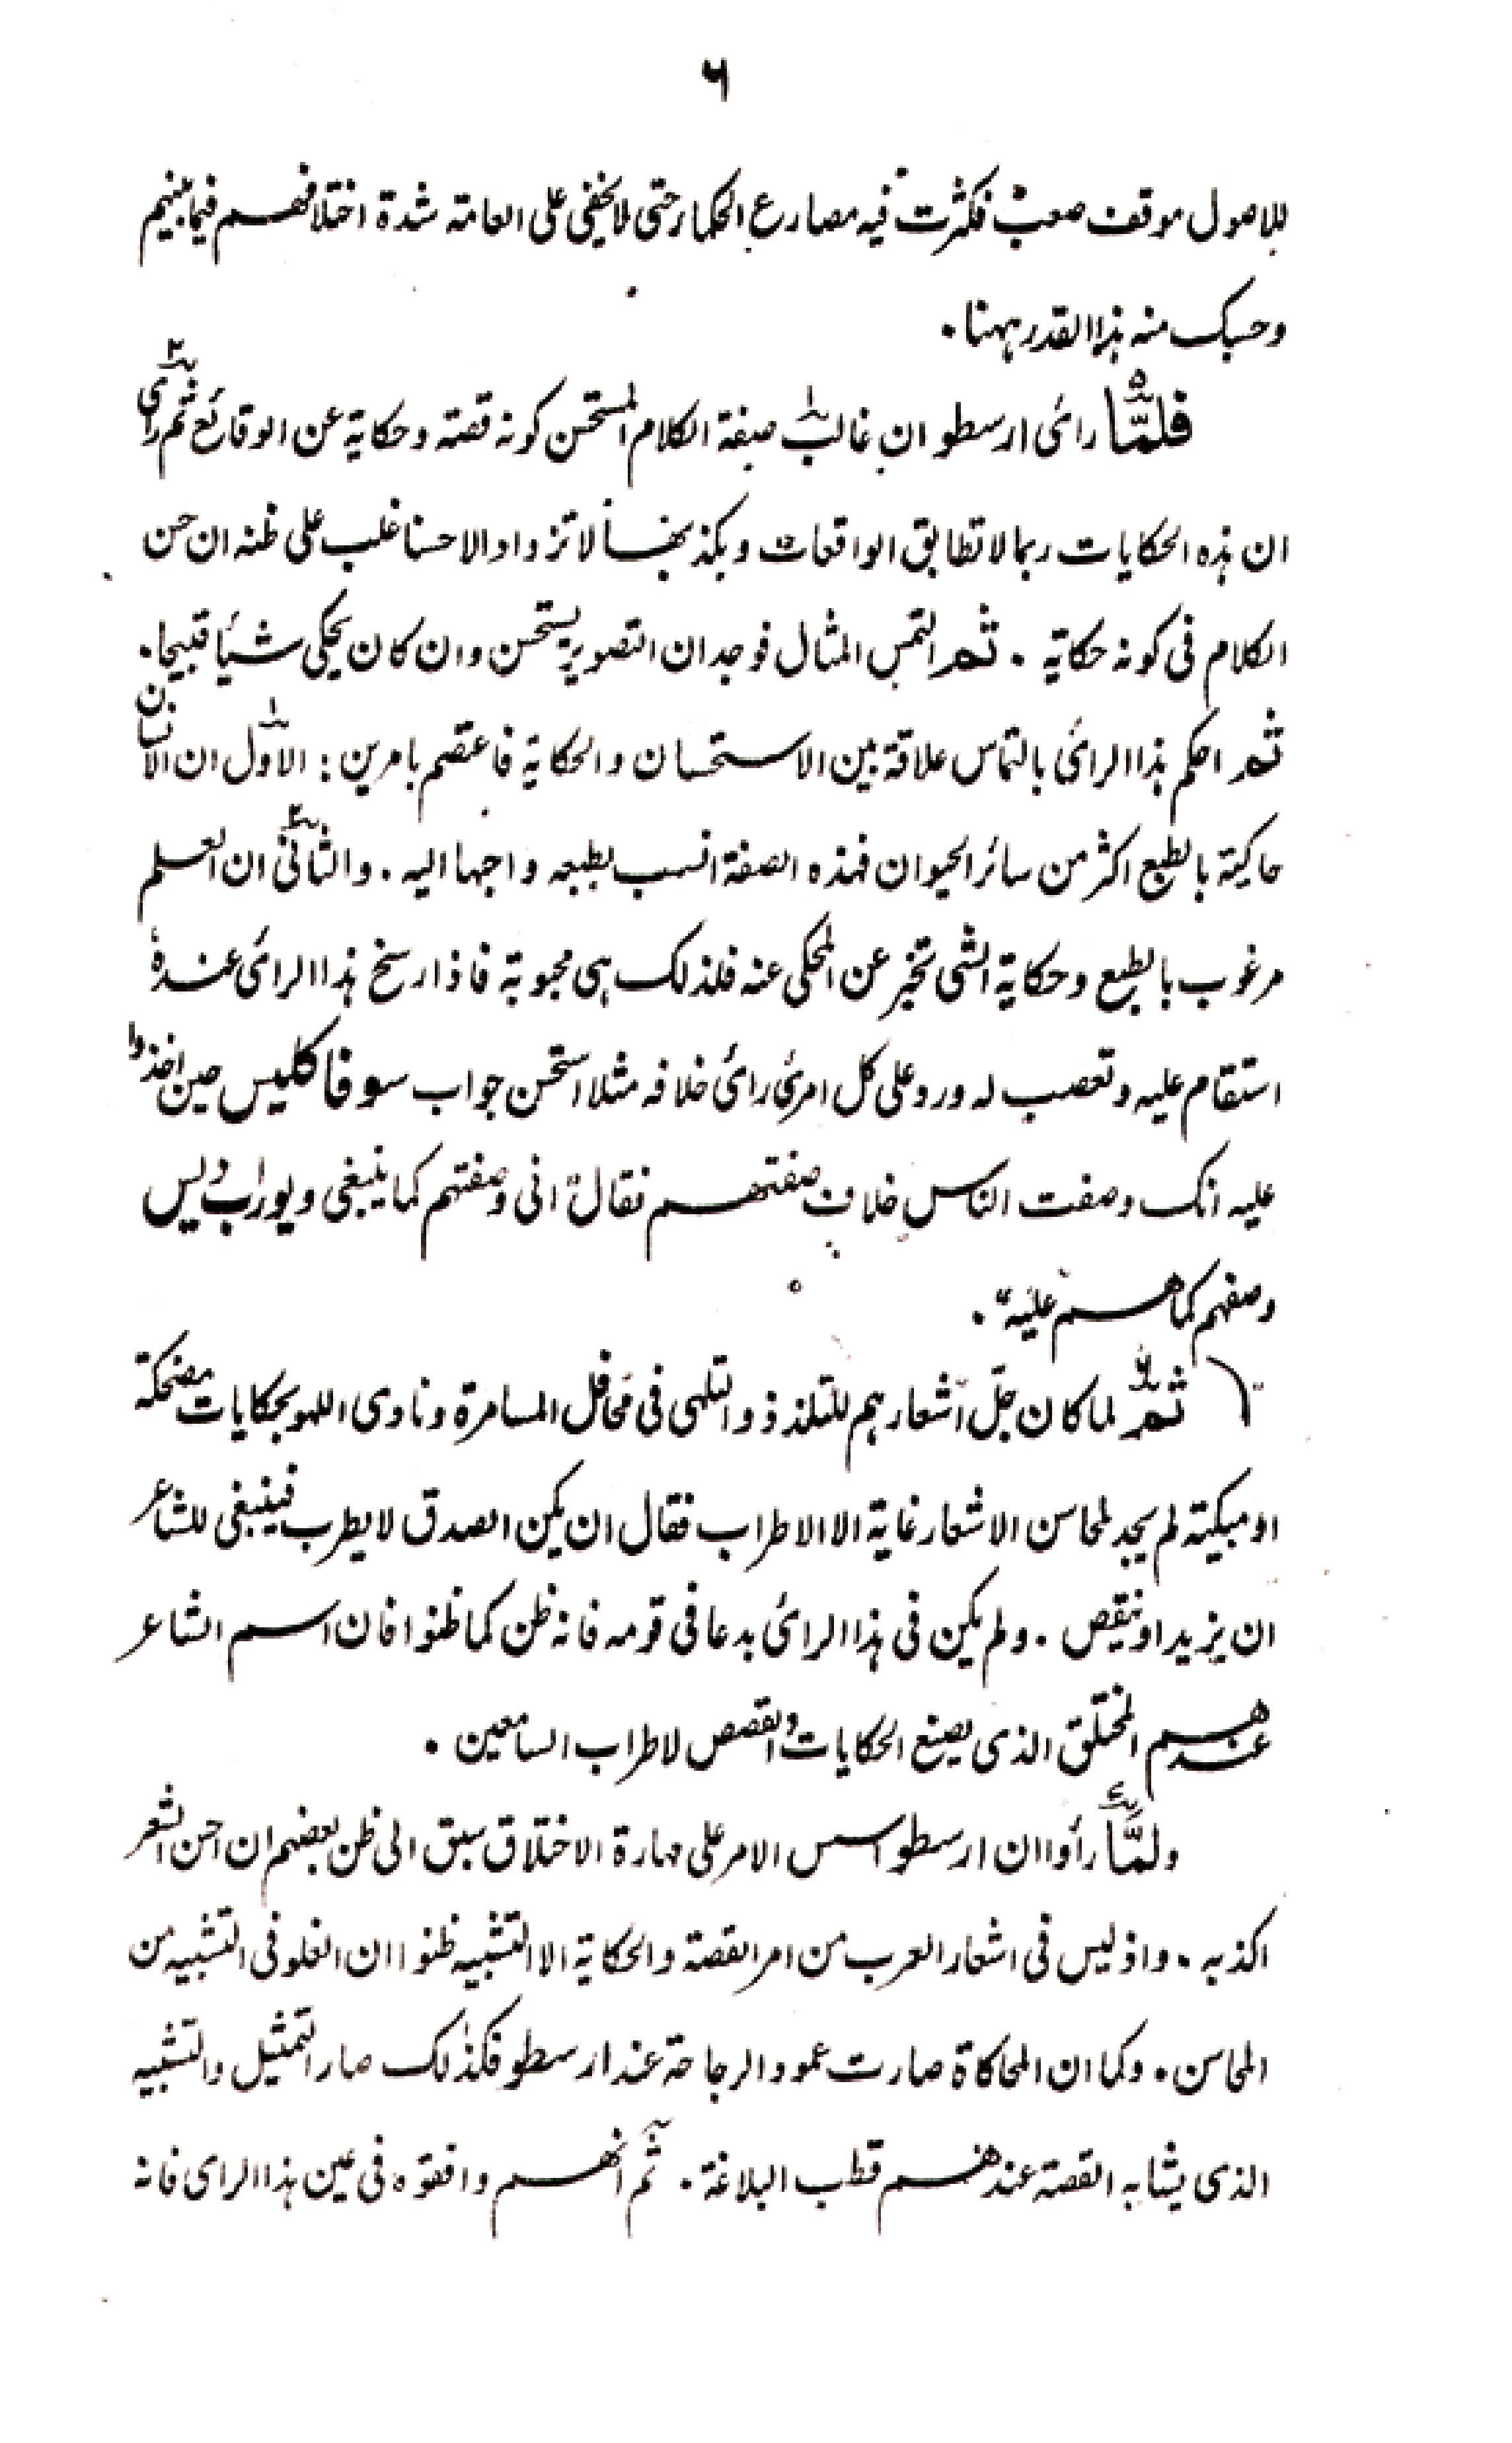 ۶
للاصول موقف صعب فكثرت فيه مصارع الحكماء حتى لا يخفى على العامة شدة اختلافهم فيما بينهم
وحسبك منه هذا القدر ههنا.
فلمّا رأى ارسطو ان غالب صفة الكلام المستحسن كونه قصة وحكاية عن الوقائع ثم رأى
ان هذه الحكايات ربما لا تطابق الواقعات وبكذبها لا تزداد الا حسنا غلب على ظنه ان حسن
الكلام فى كونه حكاية. ثم التمس المثال فوجد ان التصوير يستحسن وان كان يحكى شيأ قبيحا.
ثم احكم هذا الرأى بالتماس علاقة بين الاستحسان والحكاية فاعتصم بامرين: الاوّل ان الانسان
حاكية بالطبع اكثر من سائر الحيوان فهذه الصفة انسب بطبعه واجها اليه. والثانى ان العلم
مرغوب بالطبع وحكاية الشى تخبر عن المحكى عنه فلذلك هى محبوبة فاذا رسخ هذا الرأى عنده
استقام عليه وتعصب له ورد على كل امرئ رأى خلافه مثلا استحسن جواب سوفاكليس حين اخذوا
عليه انك وصفت الناس خلاف صفتهم فقال "انى وصفتهم كما ينبغى ويورابوليس
وصفهم كما هم عليه".
ثم لما كان جلّ اشعارهم للتلذذ والتلهى فى محافل المسامرة ونادى اللهو بحكايات مضحكة
او مبكية لم يجد لمحاسن الاشعار غاية الا الاطراب فقال ان يكن الصدق لا يطرب فينبغى للشاعر
ان يزيد او ينقص. ولم يكن فى هذا الرأى بدعا فى قومه فانه ظن كما ظنوا فان اسم الشاعر
عندهم المختلق الذى يصنع الحكايات والقصص لاطراب السامعين.
ولمّا رأوا ان ارسطو اسس الامر على مهارة الاختلاق سبق الى ظن بعضهم ان احسن الشعر
اكذبه. واذ ليس فى اشعار العرب من امر القصة والحكاية الا التشبيه ظنوا ان الغلو فى التشبيه من
المحاسن. وكما ان المحاكاة صارت عمود الرجاحة عند ارسطو فكذلك صار التمثيل والتشبيه
الذى يشابه القصة عندهم قطب البلاغة. ثم انهم وافقوه فى عين هذا الراى فانه